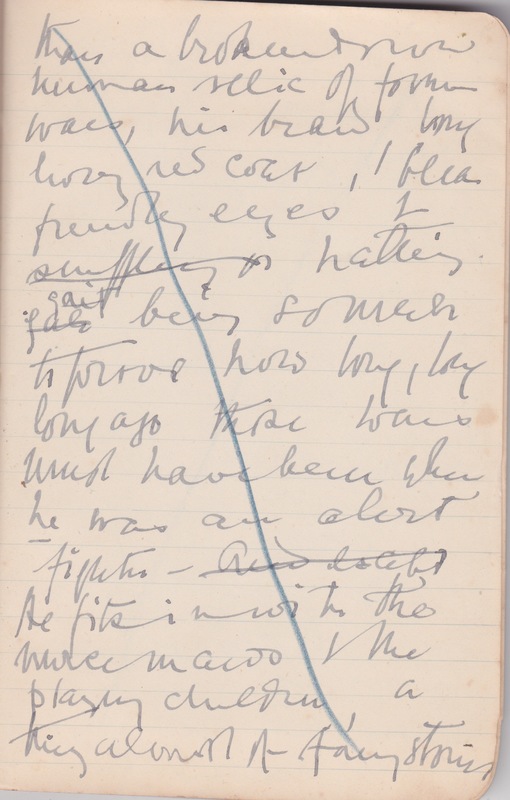 than a broken down
human relic of former
wars, his beard long
long red coat, blea
friendly eyes &
shuffling halting
gait being somewh
to prove how long, long
long ago those wars
must have been when
he was an alert
fighter - And
He fits in with the
nurse maids & the
playing children, a
thing almost of fairy stories